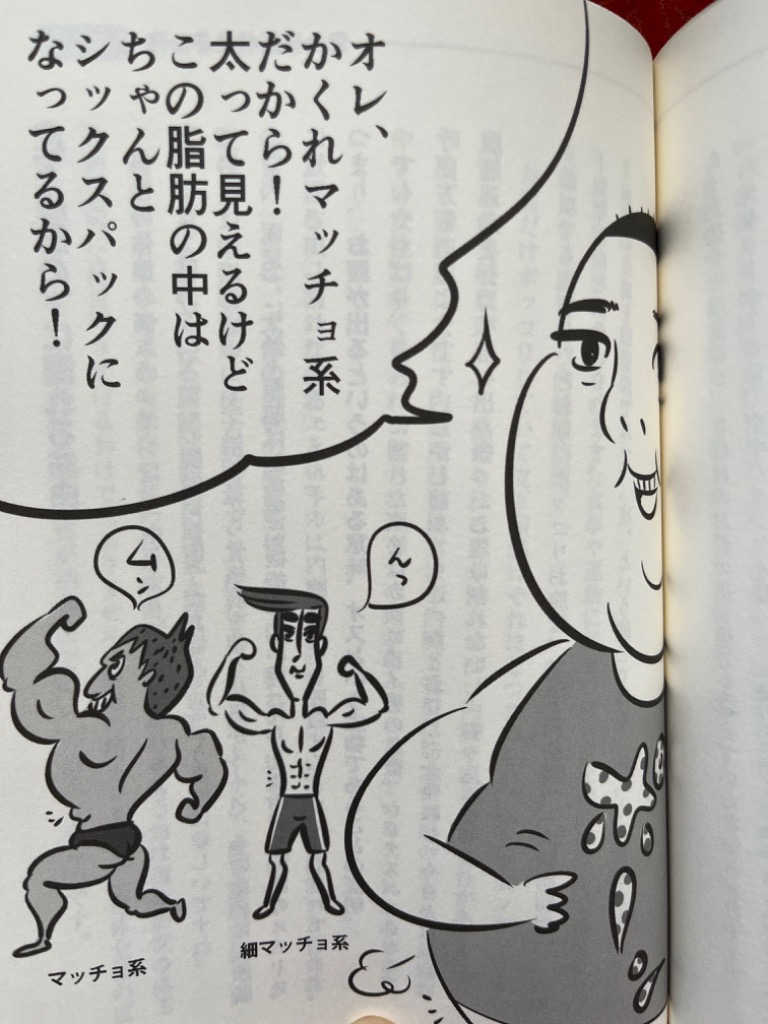 オレ、
かくれマッチョ系
だから！
太って見えるけど
この脂肪の中は
ちゃんと
シックスパックに
なってるから！
んっ
ムン
細マッチョ系
マッチョ系